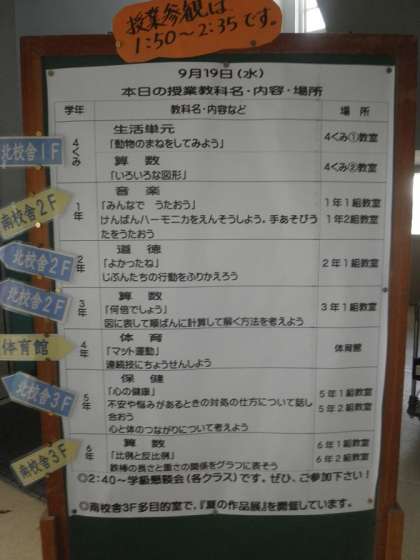 授業参観は
1:50～2:35です。
9月19日(水)
本日の授業教科名・内容・場所
学年 教科名・内容など 場所
北校舎1F
4くみ
生活単元
「動物のまねをしてみよう」 4くみ①教室
算数
「いろいろな図形」 4くみ②教室
南校舎2F
1年
音楽
「みんなで うたおう」 1年1組教室
けんばんハーモニカをえんそうしよう。手あそびう 1年2組教室
たをうたおう
北校舎2F
2年
道徳
「よかったね」 2年1組教室
じぶんたちの行動をふりかえろう
北校舎2F
3年
算数
「何倍でしょう」 3年1組教室
図に表して順ばんに計算して解く方法を考えよう
体育館
4年
体育
「マット運動」 体育館
連続技にちょうせんしよう
北校舎3F
5年
保健
「心の健康」 5年1組教室
不安や悩みがあるときの対処の仕方について話し 5年2組教室
合おう
心と体のつながりについて考えよう
南校舎3F
6年
算数
「比例と反比例」 6年1組教室
鉄棒の長さと重さの関係をグラフに表そう 6年2組教室
◎2:40～学級懇談会(各クラス)です。ぜひ、ご参加下さい!
◎南校舎3F多目的室で、『夏の作品展』を開催しています。